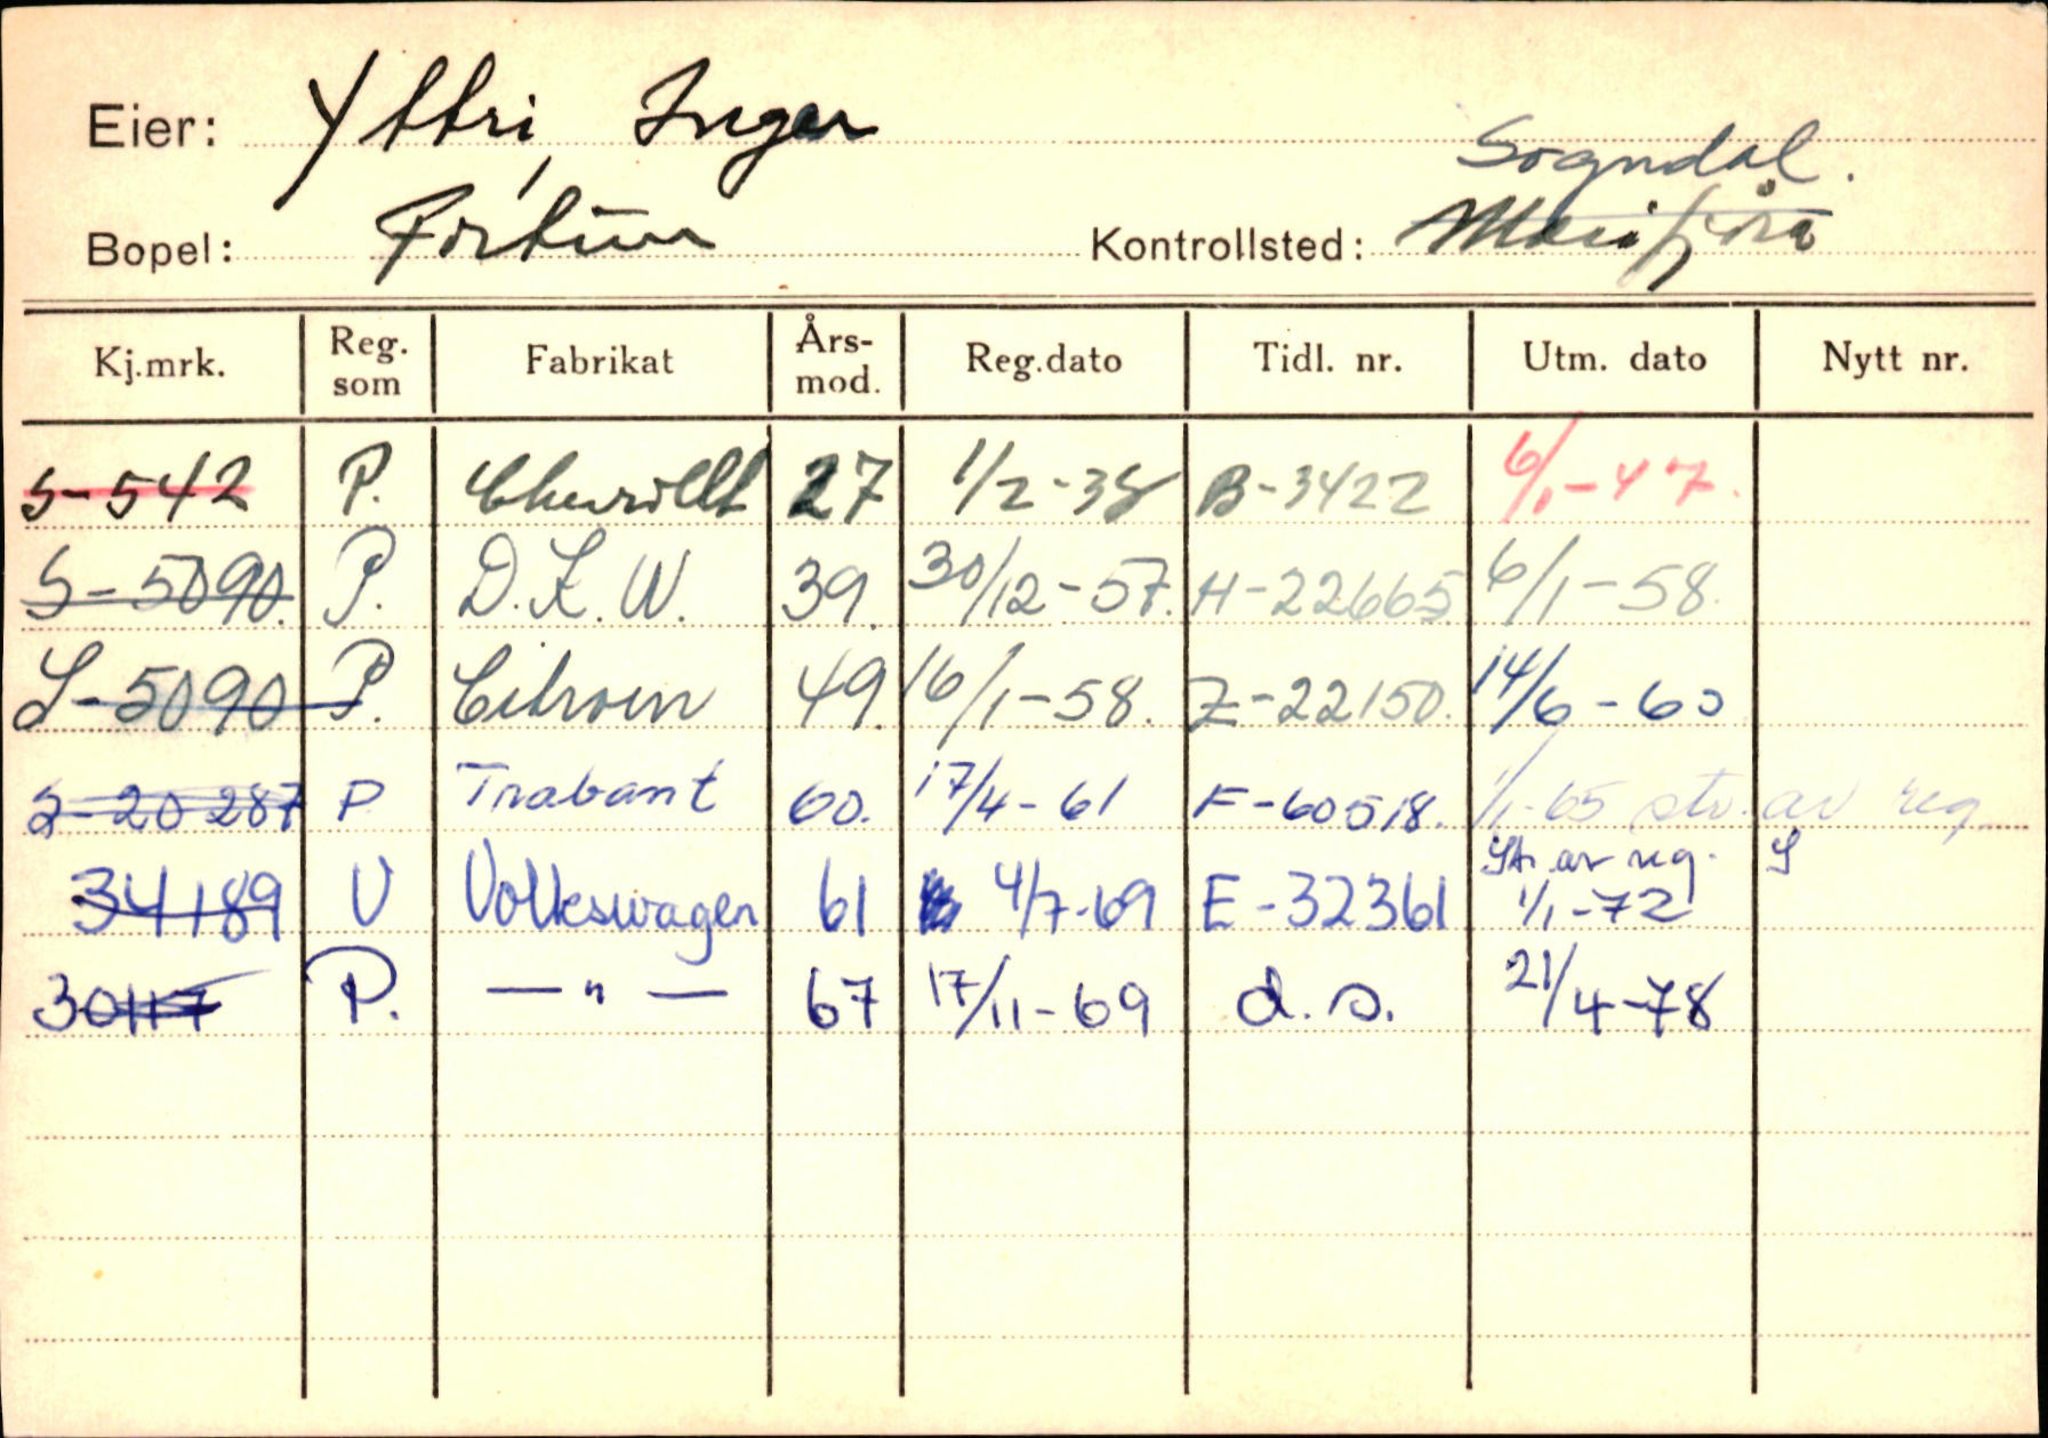 Eier: Yttri, Inger
Sogndal.
Bopel: Fortun Kontrollsted: Marifjøra
Kj.mrk. Reg. som Fabrikat Års-mod. Reg.dato Tidl. nr. Utm. dato Nytt nr.
S-542 P. Chevrollt 27 1/2-38 B-3422 6/1-47.
S-5090. P. D.K.W. 39. 30/12-57. H-22665 6/1-58.
S-5090 P. Citroen 49. 16/1-58. Z-22150. 14/6-60
S-20287 P Trabant 60. 17/4-61 F-60518. 1/1-65 str. av reg
34189 V Volkswagen 61 4/7-69 E-32361 Str. av reg. 1/1-72 S
30117 P. —"— 67 17/11-69 d.s. 21/4-78